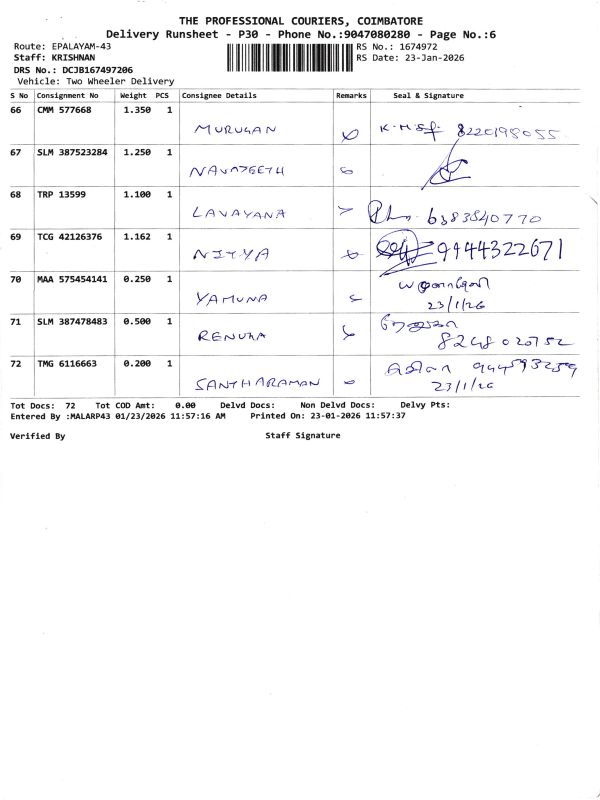 THE PROFESSIONAL COURIERS, COIMBATORE
Delivery Runsheet - P30 - Phone No.:9047080280 - Page No.:6
Route: EPALAYAM-43 RS No.: 1674972
Staff: KRISHNAN RS Date: 23-Jan-2026
DRS No.: DCJB167497206
Vehicle: Two Wheeler Delivery
S No Consignment No Weight PCS Consignee Details Remarks Seal & Signature
66 CMM 577668 1.350 1
MURUGAN 8220198055
67 SLM 387523284 1.250 1
NAVAJEETH
68 TRP 13599 1.100 1
LAVAYANA 6383840770
69 TCG 42126376 1.162 1
NITYA 9944322671
70 MAA 575454141 0.250 1
YAMUNA
23/1/26
71 SLM 387478483 0.500 1
RENUKA
72 TMG 6116663 0.200 1
SANTHARAMAN
23/1/26
Tot Docs: 72 Tot COD Amt: 0.00 Delvd Docs: Non Delvd Docs: Delvy Pts:
Entered By :MALARP43 01/23/2026 11:57:16 AM Printed On: 23-01-2026 11:57:37
Verified By Staff Signature